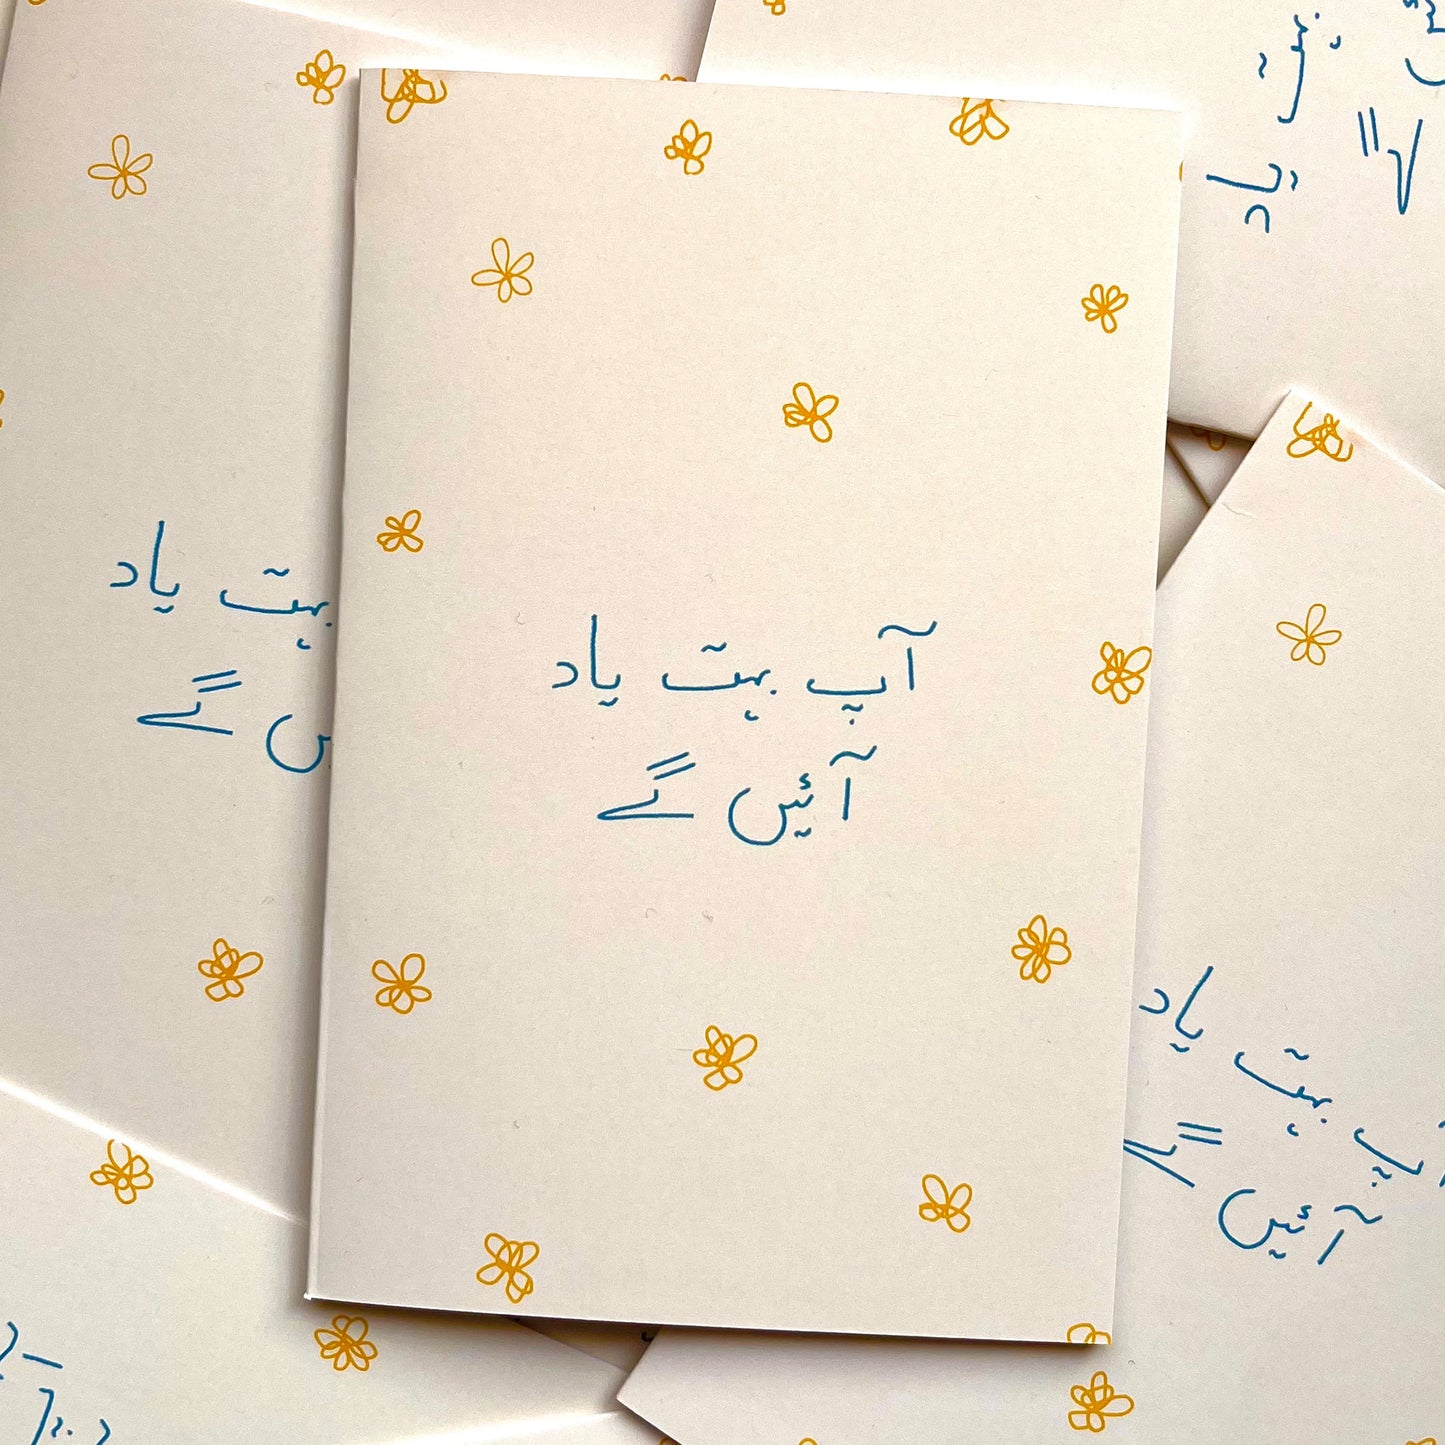 آپ بہت یاد
آئیں گے
بہت یاد
یں گے
آپ بہت یاد
آئیں گے
یاد